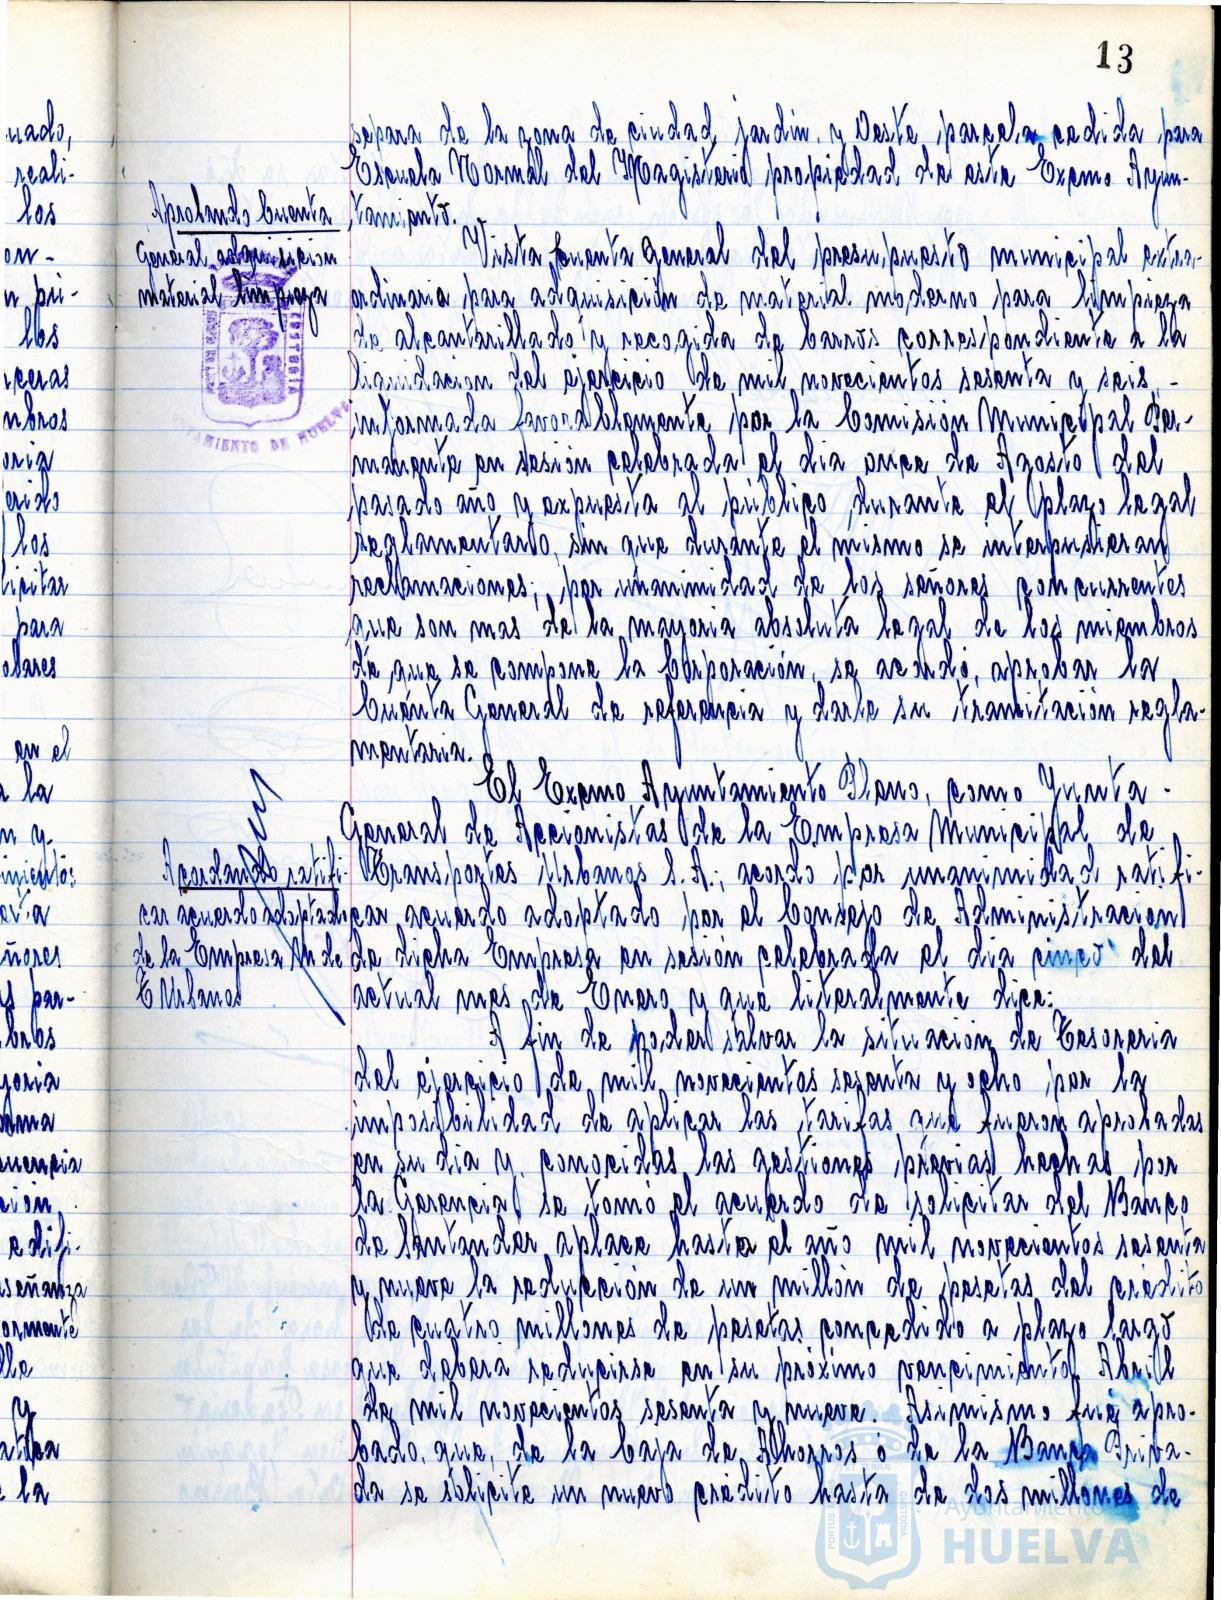 13
separa de la zona de ciudad jardín, y Oeste parcela cedida para
Escuela Normal del Magisterio propiedad de este Excmo Ayun-
tamiento.
Aprobando Cuenta
General adquisicion
material limpieza
Vista Cuenta General del presupuesto municipal extra-
ordinario para adquisición de material moderno para limpieza
de alcantarillado y recogida de barros correspondiente a la
liquidación del ejercicio de mil novecientos sesenta y seis, -
informada favorablemente por la Comisión Municipal Per-
manente en sesión celebrada el dia once de Agosto del
pasado año y expuesta al público durante el plazo legal
reglamentario, sin que durante el mismo se interpusieran
reclamaciones; por unanimidad de los señores concurrentes
que son mas de la mayoria absoluta legal de los miembros
de que se compone la Corporación, se acordó, aprobar la
Cuenta General de referencia y darle su tramitación regla-
mentaria.
El Excmo Ayuntamiento Pleno, como Junta -
General de Accionistas de la Empresa Municipal de
Acordando ratifi-
car acuerdo adoptado
de la Empresa M de
T Urbanos
Transportes Urbanos S.A.; acordo por unanimidad ratifi-
car acuerdo adoptado por el Consejo de Administracion
de dicha Empresa en sesión celebrada el dia cinco del
actual mes de Enero y que literalmente dice:
A fin de poder salvar la situación de Tesoreria
del ejercicio de mil novecientos sesenta y ocho, por la
imposibilidad de aplicar las tarifas que fueron aprobadas
en su dia y conocidas las gestiones previas hechas por
la Gerencia se tomó el acuerdo de solicitar del Banco
de Santander aplace hasta el año mil novecientos sesenta
y nueve la reducción de un millón de pesetas del crédito
de cuatro millones de pesetas concedido a plazo largo
que deberá reducirse en su próximo vencimiento Abril
de mil novecientos sesenta y nueve. Asimismo fué apro-
bado que, de la Caja de Ahorros ó de la Banca Priva-
da se solicite un nuevo crédito hasta de dos millones de
Ayuntamiento
HUELVA